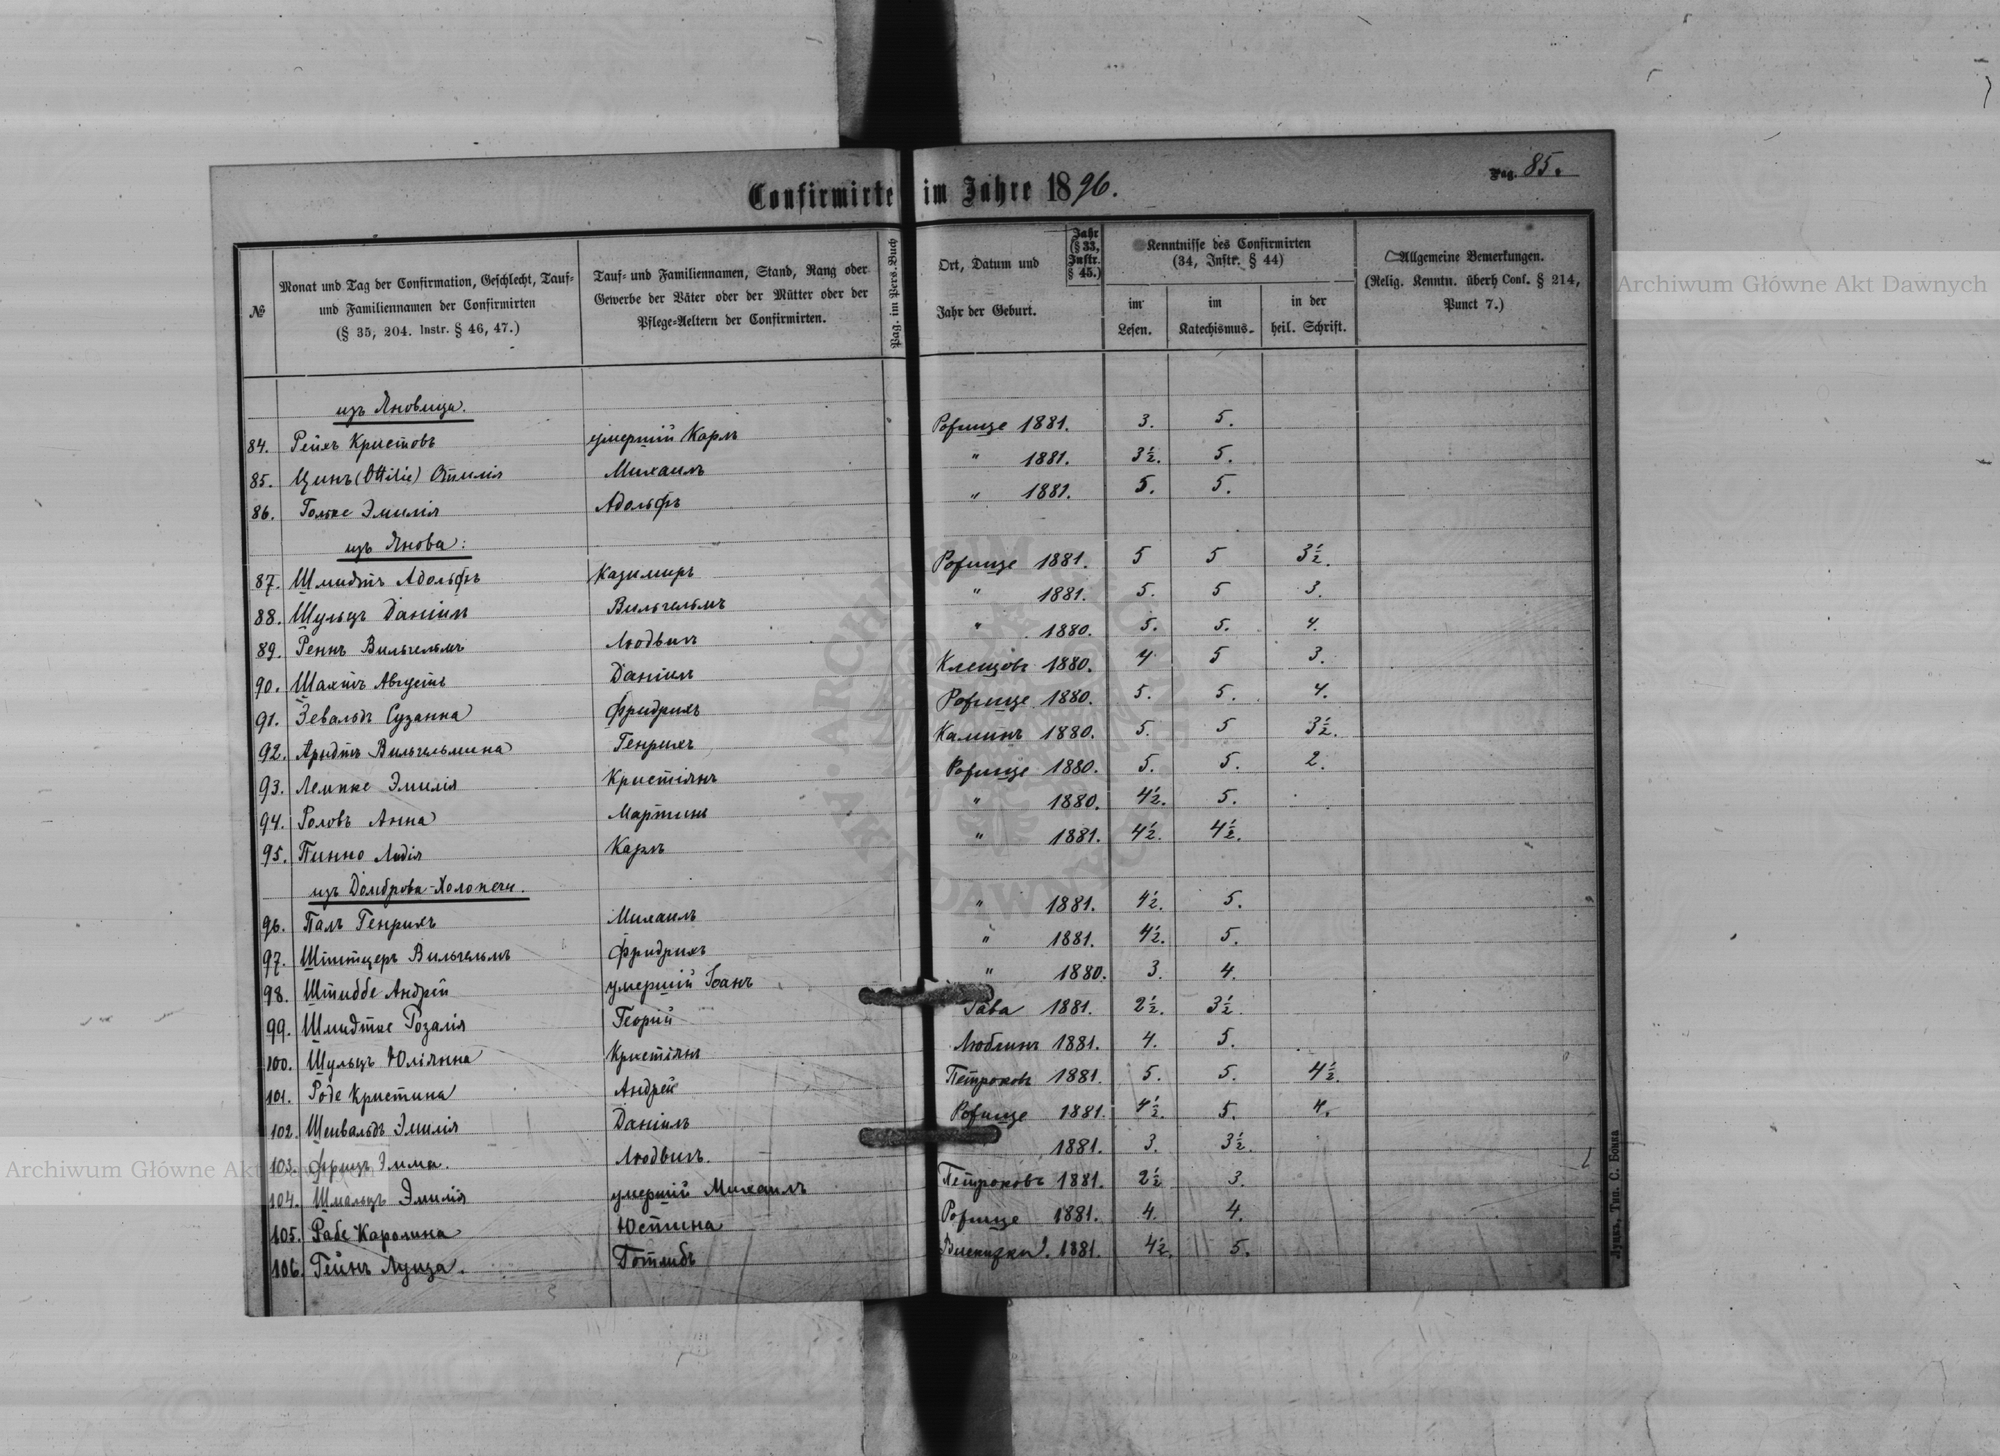 Pag. 85.
Confirmirte im Jahre 1896.
№
Monat und Tag der Confirmation, Geschlecht, Tauf- und Familiennamen der Confirmirten (§ 35, 204. Instr. § 46, 47.)
Tauf- und Familiennamen, Stand, Rang oder Gewerbe der Väter oder der Mütter oder der Pflege-Aeltern der Confirmirten.
Pag. im Pers. Buch
Ort, Datum und Jahr der Geburt.
Jahr (§ 33, Instr. § 45.)
Kenntnisse des Confirmirten (34, Instr. § 44)
im Lesen.
im Katechismus.
in der heil. Schrift.
Allgemeine Bemerkungen. (Relig. Kenntn. überh Conf. § 214, Punct 7.)
изъ Яновица.
84. Рейхъ Кристовъ умерший Карлъ Рожище 1881. 3. 5.
85. Цинъ (Ottilie) Отилія Михаилъ " 1881. 3½. 5.
86. Гольке Эмилія Адольфъ " 1881. 5. 5.
изъ Янова:
87. Шмидтъ Адольфъ Казимиръ Рожище 1881. 5 5 3½.
88. Шульцъ Даніилъ Вильгельмъ " 1881. 5. 5 3.
89. Реннъ Вильгельмъ Людвигъ " 1880. 5. 5. 4.
90. Шахтъ Августъ Даніилъ Клещовъ 1880. 4 5 3.
91. Зевальдъ Сузанна Фридрихъ Рожище 1880. 5. 5. 4.
92. Арндтъ Вильгельмина Генрихъ Каминъ 1880. 5. 5 3½.
93. Лемпке Эмилія Кристіянъ Рожище 1880. 5. 5. 2.
94. Роловъ Анна Мартинъ " 1880. 4½. 5.
95. Пинно Лидія Карлъ " 1881. 4½. 4½.
изъ Домброва-Холопечи.
96. Палъ Генрихъ Михаилъ " 1881. 4½. 5.
97. Вильгельмъ Фридрихъ " 1881. 4½. 5.
98. Штиббе Андрей умерший Іоанъ " 1880. 3. 4.
99. Шмидтке Розалія Георий Рава 1881. 2½. 3½.
100. Шульцъ Юліянна Кристіянъ Люблинъ 1881. 4. 5.
101. Роде Кристина Андрей Петроковъ 1881. 5. 5. 4½.
102. Шенвальдъ Эмилія Даніилъ Рожище 1881. 4½. 5. 4.
103. Фрицъ Эмма. Людвигъ. 1881. 3. 3½.
104. Шмальцъ Эмилія умерший Михаилъ Петроковъ 1881. 2½ 3.
105. Рабе Каролина Юстина Рожище 1881. 4. 4.
106. Гейнъ Луиза. Готлибъ 1881. 4½. 5.
Луцкъ, Тип. С. Бонка
Archiwum Główne Akt Dawnych
Archiwum Główne Akt Dawnych
ARCHIWUM GŁÓWNE AKT DAWNYCH